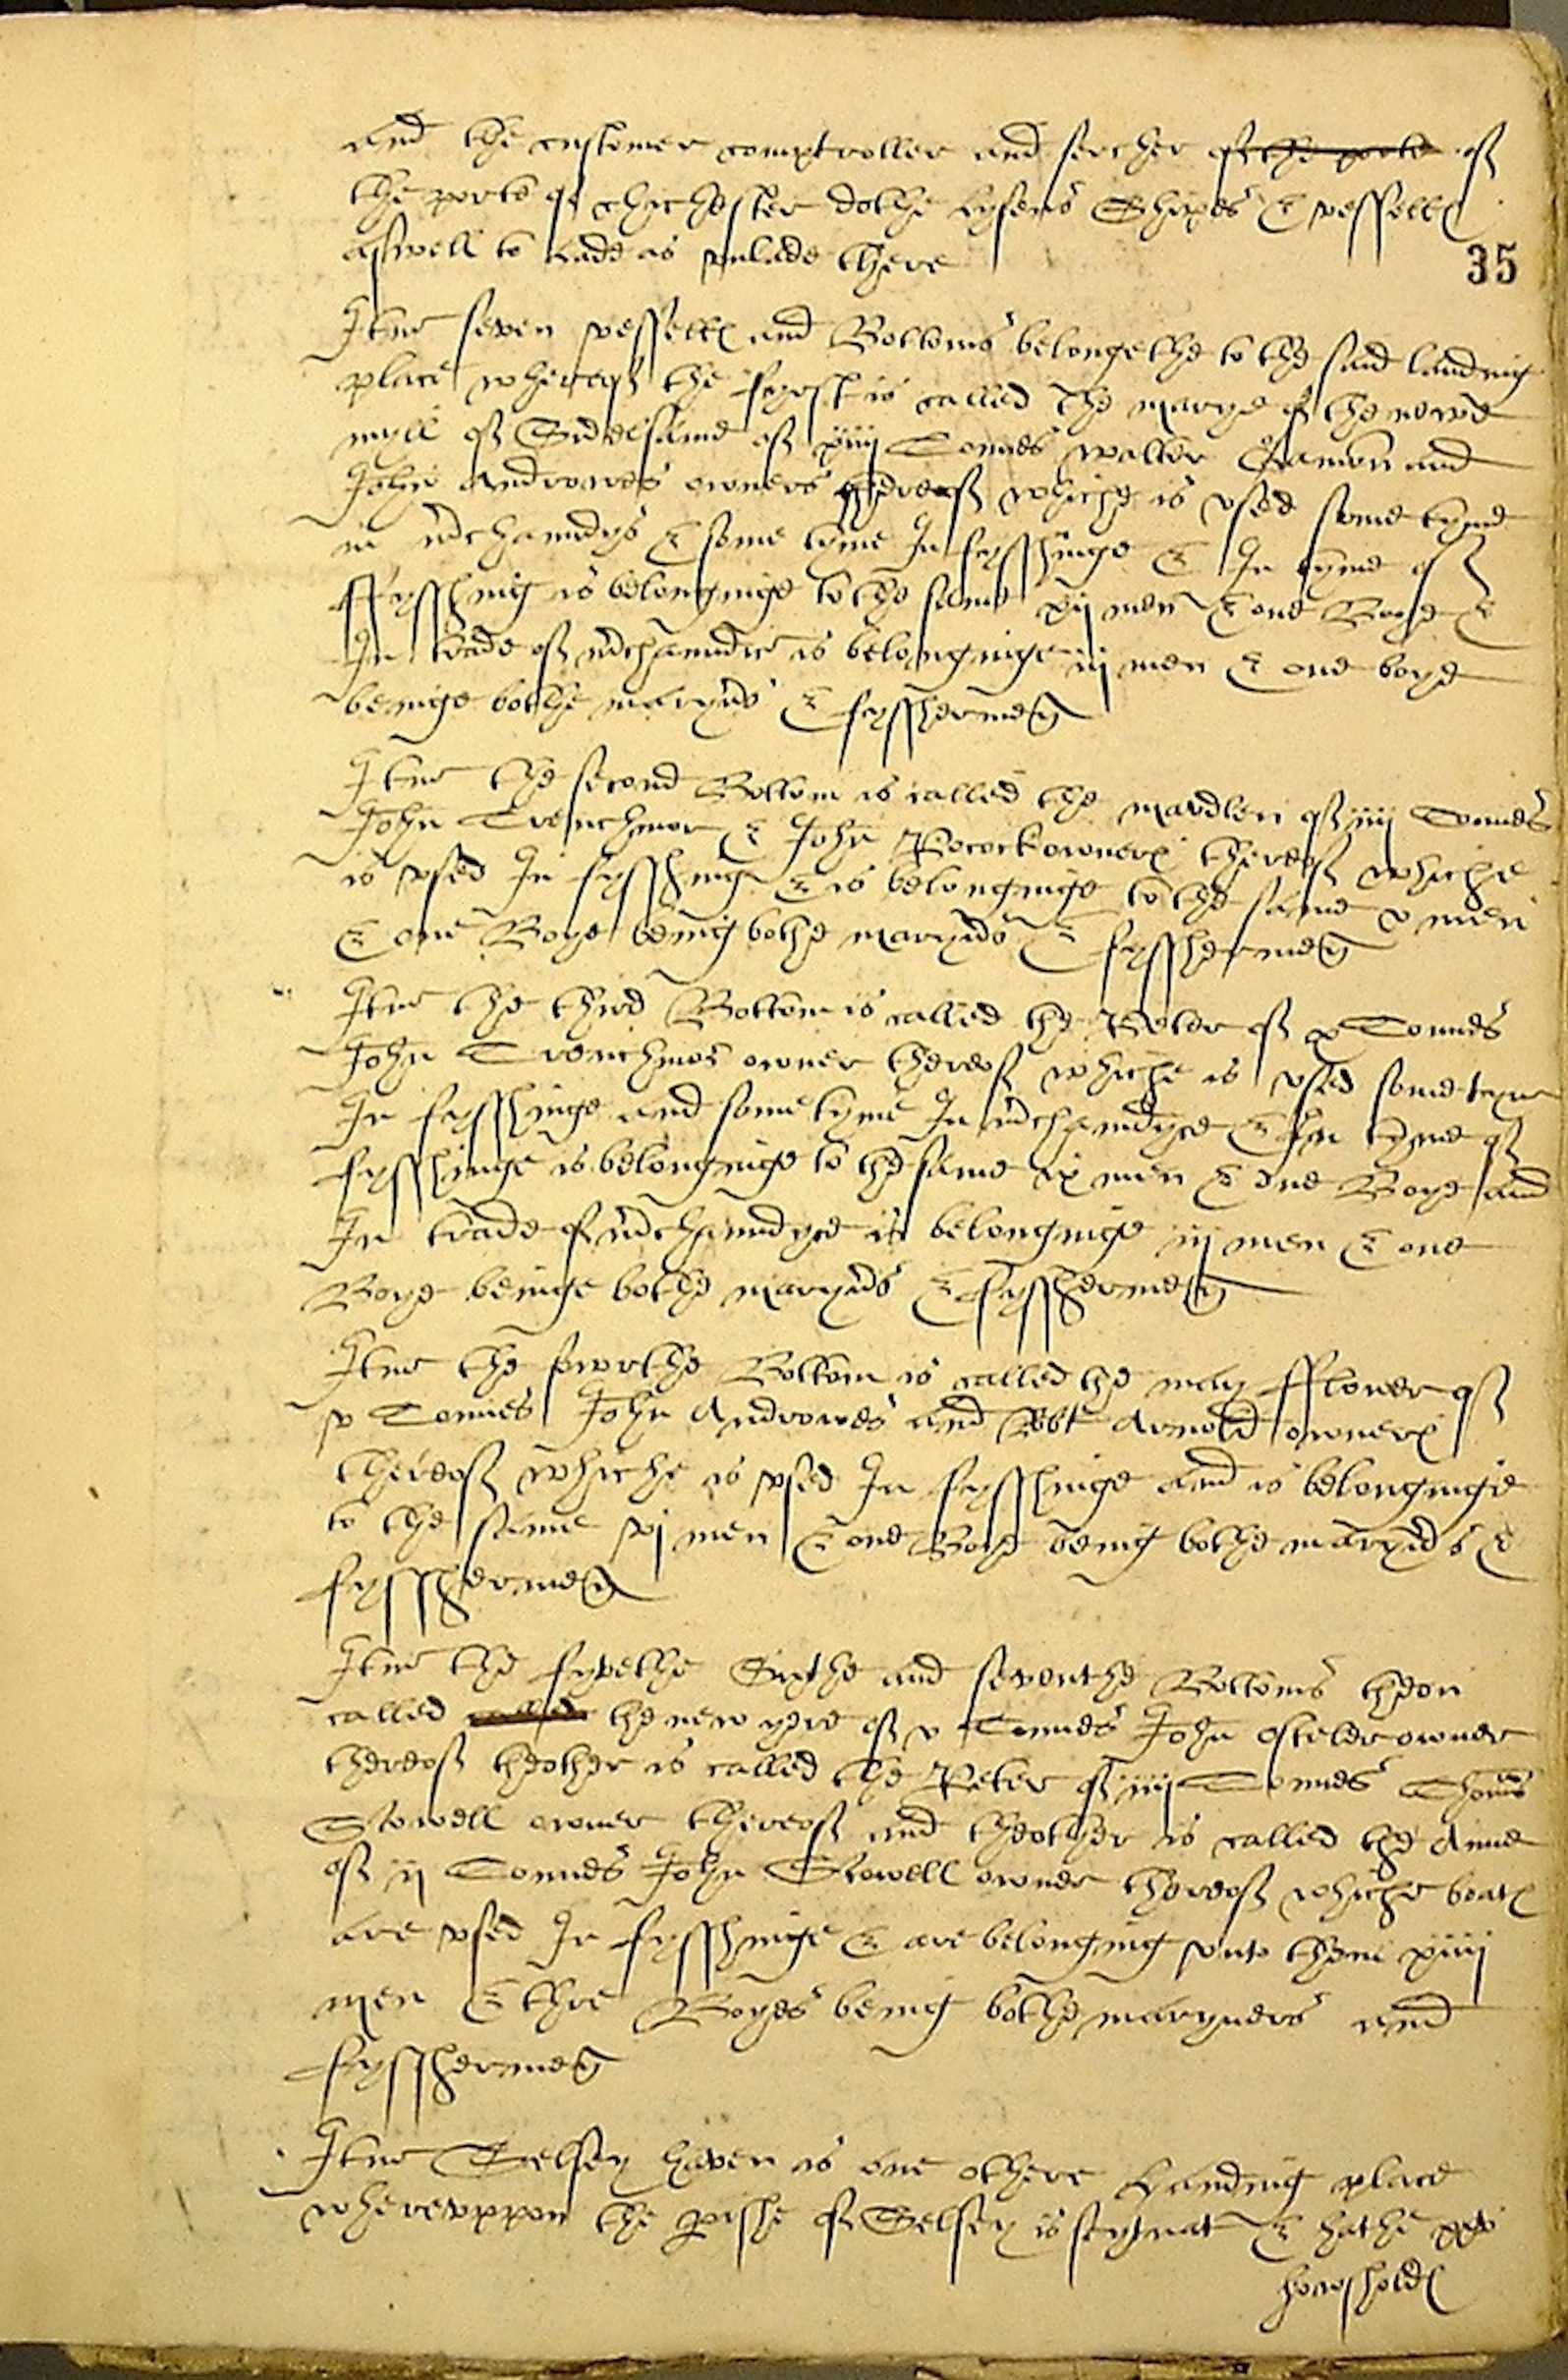 and the customer comptroller and sercher of the porte of
the porte of chichester dothe lysens Shipes & vessells
aswell to lade as vnlade there
35
Itm seven vessells and Bottoms belongethe to the said landing
place whereof the fyrst is called The marye of the newe
myll of Sidelsame of xiiij Tonnes walter and
John Androwes owners thereof whiche is vsed some tyme
in mchaundys & some tyme In fysshinge & In tyme of
ffysshing is belonginge to the same xij men & one Boye &
In trade of mchaundic is belonginge iij men & one boye
beinge bothe maryns & fysshermen
Itm the second Bottom is called the mawdlen of iiij Tonnes
John Trenchmor & John Pocock owners thereof whiche
is vsed In fysshing & is belonginge to the same v men
& one Boye being bothe maryns & fysshermen
Itm the third Bottom is called the Peter of x Tonnes
John Trenchmor owner thereof whiche is vsed some tyme
In fysshinge and some tyme In mchandyce & In tyme of
fysshinge is belonginge to the same ix men & one Boye and
In trade of mchaundyce is belonginge iij men & one
Boye beinge bothe maryns & fysshermen
Itm the fowrthe Bottom is called the may fflower of
v Tonnes John Androwes and Robt Arnold owners
thereof whiche is vsed In fysshinge and is belonginge
to the same vj men & one Boye being bothe maryns &
fysshermen
Itm the fyvethe Sixthe and seventhe Bottoms theon
called called the new yere of v Tonnes John owner
thereof theother is called the Peter of iiij Tonnes Thoms
Stowell owner thereof and theother is called the Anne
of ij Tonnes John Stowell owner thereof whiche boats
are vsed In fysshinge & are belonging vnto them xiiij
men & thre Boyes being bothe maryners and
fysshermen
Itm Selsey haven is one othere Landing place
wherevppon the pishe of Selsey is scytuat & hathe
howsholds